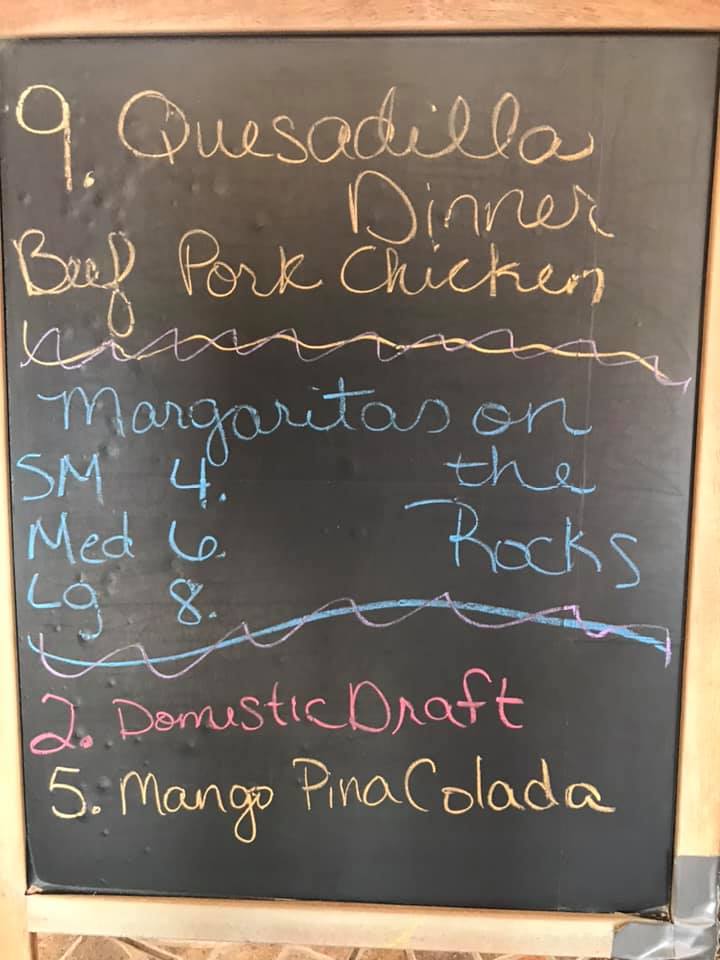 9. Quesadilla
Dinner
Beef Pork Chicken
Margaritas on
SM 4. the
Med 6. Rocks
Lg 8.
2. Domestic Draft
5. Mango Pina Colada